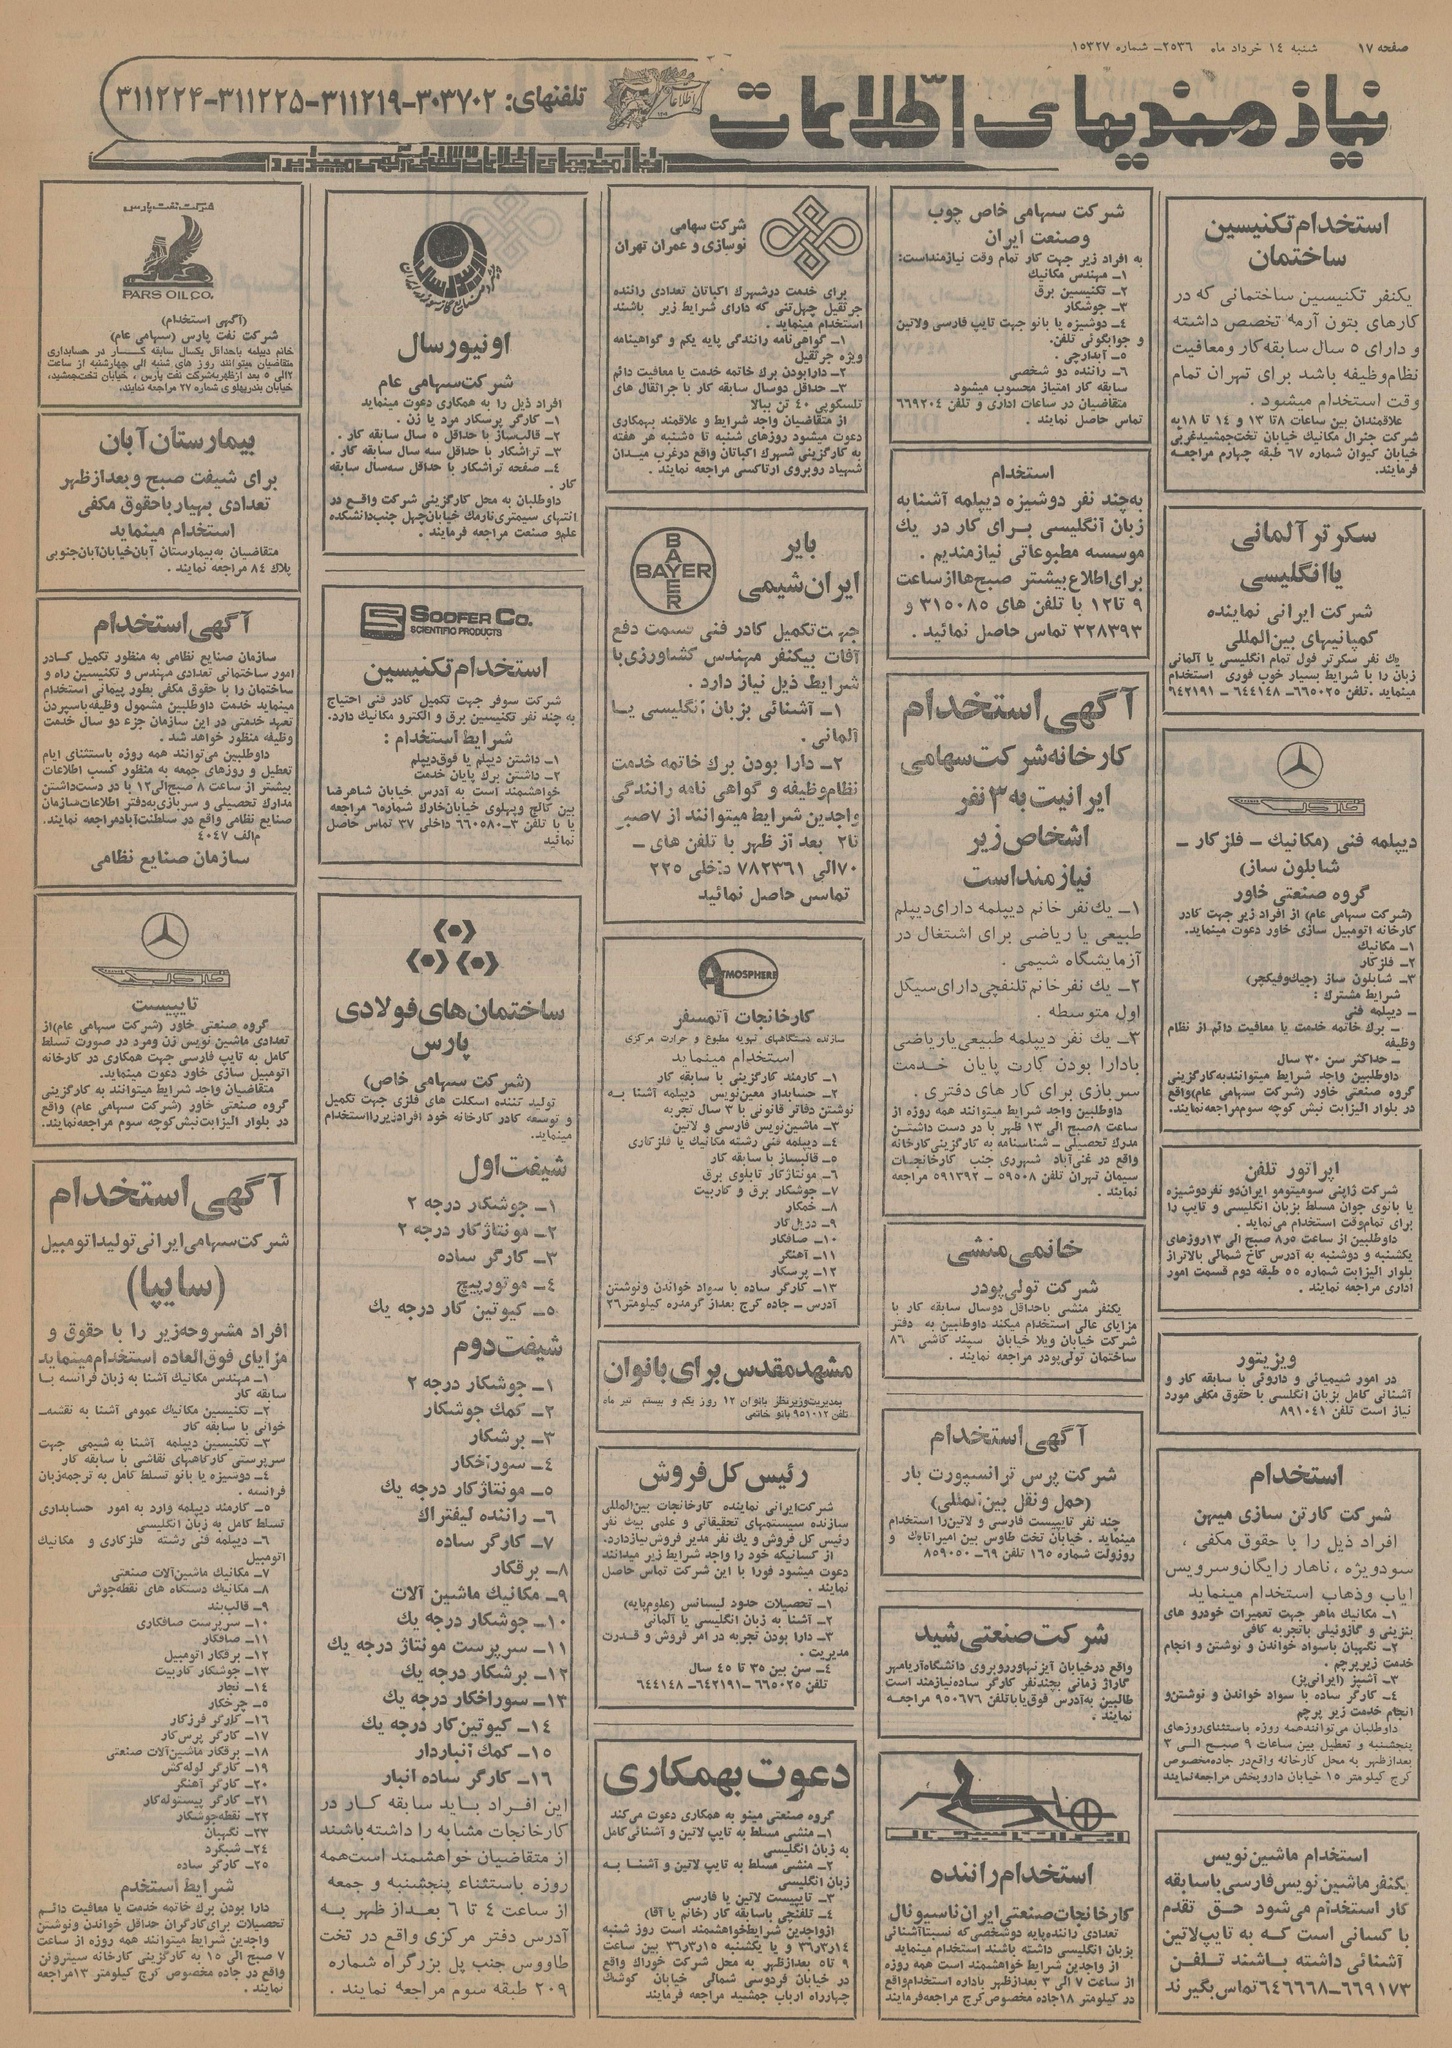 صفحه ۱۷ شنبه ۱٤ خرداد ماه ۲٥۳٦ـ شماره ۱٥۳۲۷
نیازمندیهای اطلاعات
تلفنهای: ۳۰۳۷۰۲-۳۱۱۲۱۹-۳۱۱۲۲۵-۳۱۱۲۲۴
نیازمندیهای اطلاعات تلفنی آگهی میپذیرد
استخدام تکنیسین
ساختمان
یکنفر تکنیسین ساختمانی که در
کارهای بتون آرمه تخصص داشته
و دارای ٥ سال سابقه کار و معافیت
نظام وظیفه باشد برای تهران تمام
وقت استخدام میشود .
علاقمندان بین ساعات ۸تا ۱۳ و ۱٤ تا ۱۸ به
شرکت جنرال مکانیک خیابان تخت جمشید غربی
خیابان کیوان شماره ٦۷ طبقه چهارم مراجعه
فرمایند.
سکرتر آلمانی
یا انگلیسی
شرکت ایرانی نماینده
کمپانیهای بین‌المللی
یک نفر سکرتر فول تمام انگلیسی یا آلمانی
زبان را با شرایط بسیار خوب فوری استخدام
مینماید . تلفن ٦٦٥۰۲٥- ٦٤٤۱٤۸- ٦٤۲۱۹۱
دیپلمه فنی (مکانیک - فلزکار -
شابلون ساز)
گروه صنعتی خاور
(شرکت سهامی عام) از افراد زیر جهت کادر
کارخانه اتومبیل سازی خاور دعوت مینماید.
۱ـ مکانیک
۲ـ فلزکار
۳ـ شابلون ساز (جیک وفیکچر)
شرایط مشترک :
ـ دیپلمه فنی
ـ برک خاتمه خدمت یا معافیت دائم از نظام
وظیفه
ـ حداکثر سن ۳۰ سال
داوطلبین واجد شرایط میتوانند به کارگزینی
گروه صنعتی خاور (شرکت سهامی عام) واقع
در بلوار الیزابت نبش کوچه سوم مراجعه نمایند.
اپراتور تلفن
شرکت ژاپنی سومیتومو ایران دو نفر دوشیزه
یا بانوی جوان مسلط بزبان انگلیسی و تایپ را
برای تمام وقت استخدام می نماید .
داوطلبین از ساعت ۸ر٥ صبح الی ۱۳ روزهای
یکشنبه و دوشنبه به آدرس کاخ شمالی بالاتر از
بلوار الیزابت شماره ٥٥ طبقه دوم قسمت امور
اداری مراجعه نمایند .
ویزیتور
در امور شیمیائی و داروئی با سابقه کار و
آشنائی کامل بزبان انگلسی با حقوق مکفی مورد
نیاز است تلفن ۸۹۱۰٤۱
استخدام
شرکت کارتن سازی میهن
افراد ذیل را با حقوق مکفی ،
سودویژه ، ناهار رایگان و سرویس
ایاب وذهاب استخدام مینماید
۱ـ مکانیک ماهر جهت تعمیرات خودرو های
بنزینی و گازوئیلی باتجربه کافی
۲ـ نگهبان باسواد خواندن و نوشتن و انجام
خدمت زیر پرچم .
۳ـ آشپز (ایرانی پز)
٤ـ کارگر ساده با سواد خواندن و نوشتن و
انجام خدمت زیر پرچم
داوطلبان می توانند همه روزه باستثنای روزهای
پنجشنبه و تعطیل بین ساعات ۹ صبح الی ۳
بعدازظهر به محل کارخانه واقع در جاده مخصوص
کرج کیلومتر ۱٥ خیابان داروپخش مراجعه نمایند
استخدام ماشین نویس
یکنفر ماشین نویس فارسی با سابقه
کار استخدام می شود حق تقدم
با کسانی است که به تایپ لاتین
آشنائی داشته باشند تلفن
٦٦۹۱۷۳-٦٤٦٦٦۸ تماس بگیرند
شرکت سهامی خاص چوب
وصنعت ایران
به افراد زیر جهت کار تمام وقت نیازمنداست:
۱ـ مهندس مکانیک
۲ـ تکنیسین برق
۳ـ جوشکار
٤ـ دوشیزه یا بانو جهت تایپ فارسی ولاتین
و جوابگوئی تلفن.
٥ـ آبدارچی .
٦ـ راننده دو شخصی
سابقه کار امتیاز محسوب میشود
متقاضیان در ساعات اداری و تلفن ٦٦۹۲۰٤
تماس حاصل نمایند .
استخدام
به چند نفر دوشیزه دیپلمه آشنا به
زبان انگلیسی برای کار در یک
موسسه مطبوعاتی نیازمندیم .
برای اطلاع بیشتر صبح ها از ساعت
۹ تا ۱۲ با تلفن های ۳۱٥۰۸٥ و
۳۲۸۳۹۳ تماس حاصل نمائید .
آگهی استخدام
کارخانه شرکت سهامی
ایرانیت به ۳ نفر
اشخاص زیر
نیازمند است
۱ـ یک نفر خانم دیپلمه دارای دیپلم
طبیعی یا ریاضی برای اشتغال در
آزمایشگاه شیمی .
۲ـ یک نفر خانم تلفنچی دارای سیکل
اول متوسطه .
۳ـ یک نفر دیپلمه طبیعی یا ریاضی
بادارا بودن کارت پایان خدمت
سربازی برای کار های دفتری .
داوطلبین واجد شرایط میتوانند همه روزه از
ساعت ۸صبح الی ۱۳ ظهر با در دست داشتن
مدرک تحصیلی - شناسنامه به کارگزینی کارخانه
واقع در غنی آباد شهرری جنب کارخانجات
سیمان تهران تلفن ٥۹٥۰۸ - ٥۹۱۳۹۲ مراجعه
نمایند .
خانمی منشی
شرکت تولی پودر
یکنفر منشی باحداقل دوسال سابقه کار با
مزایای عالی استخدام میکند داوطلبین به دفتر
شرکت خیابان ویلا خیابان سپند کاشی ۸٦
ساختمان تولی پودر مراجعه نمایند .
آگهی استخدام
شرکت پرس ترانسپورت بار
(حمل و نقل بین‌المللی)
چند نفر تایپیست فارسی و لاتین را استخدام
مینماید . خیابان تخت طاوس بین امیراتابک و
روزولت شماره ۱٦٥ تلفن ٦۹-۸٥۹۰٥۰
شرکت صنعتی شید
واقع درخیابان آیزنهاور روبروی دانشگاه آریامهر
گاراژ زمانی بچند نفر کارگر ساده نیازمند است
طالبین به آدرس فوق یا با تلفن ۹٥۰٦۷٦ مراجعه
نمایند .
ایران ناسیونال
استخدام راننده
کارخانجات صنعتی ایران ناسیونال
تعدادی راننده پایه دو شخصی که نسبتاآشنائی
بزبان انگلیسی داشته باشند استخدام مینماید
از واجدین شرایط خواهشمند است همه روزه
از ساعت ۷ الی ۳ بعدازظهر باداره استخدام واقع
در کیلومتر ۱۸ جاده مخصوص کرج مراجعه فرمایند
شرکت سهامی
نوسازی و عمران تهران
برای خدمت در شهرک اکباتان تعدادی راننده
جرثقیل چهل تنی که دارای شرایط زیر باشند
استخدام مینماید .
۱ـ گواهی نامه رانندگی پایه یکم و گواهینامه
ویژه جرثقیل
۲ـ دارابودن برک خاتمه خدمت یا معافیت دائم
۳ـ حداقل دوسال سابقه کار با جراثقال های
تلسکوپی ٤۰ تن ببالا
از متقاضیان واجد شرایط و علاقمند بهمکاری
دعوت میشود روزهای شنبه تا ٥شنبه هر هفته
به کارگزینی شهرک اکباتان واقع در غرب میدان
شهیاد روبروی ارتاکسی مراجعه نمایند .
BAYER
BAYER
بایر
ایران شیمی
جهت تکمیل کادر فنی قسمت دفع
آفات بیکنفر مهندس کشاورزی با
شرایط ذیل نیاز دارد .
۱ـ آشنائی بزبان انگلیسی یا
آلمانی .
۲ـ دارا بودن برک خاتمه خدمت
نظام وظیفه و گواهی نامه رانندگی
واجدین شرایط میتوانند از ۷صبح
تا۲ بعد از ظهر با تلفن های -
۷۰الی ۷۸۲۳٦۱ داخلی ۲۲٥
تماس حاصل نمائید
ATMOSPHERE
کارخانجات آتمسفر
سازنده دستگاههای تهویه مطبوع و حرارت مرکزی
استخدام مینماید
۱ـ کارمند کارگزینی با سابقه کار
۲ـ حسابدار معین نویس دیپلمه آشنا به
نوشتن دفاتر قانونی با ۳ سال تجربه
۳ـ ماشین نویس فارسی و لاتین
٤ـ دیپلمه فنی رشته مکانیک یا فلزکاری
٥ـ قالبساز با سابقه کار
٦ـ مونتاژکار تابلوی برق
۷ـ جوشکار برق و کاربیت
۸ـ خمکار
۹ـ دریل کار
۱۰ـ صافکار
۱۱ـ آهنگر
۱۲ـ پرسکار
۱۳ـ کارگر ساده با سواد خواندن ونوشتن
آدرس - جاده کرج بعداز گرمدره کیلومتر ۲٦
مشهد مقدس برای بانوان
بمدیریت وزیرنظر بانوان ۱۲ روز یکم و بیستم تیر ماه
تلفن ۹٥۱۰۱۲ بانو خاتمی
رئیس کل فروش
شرکت ایرانی نماینده کارخانجات بین‌المللی
سازنده سیستمهای تحقیقاتی و علمی بیک نفر
رئیس کل فروش و یک نفر مدیر فروش نیازدارد،
از کسانیکه خود را واجد شرایط زیر میدانند
دعوت میشود فورا با این شرکت تماس حاصل
نمایند .
۱ـ تحصیلات حدود لیسانس (علوم پایه)
۲ـ آشنا به زبان انگلیسی یا آلمانی
۳ـ دارا بودن تجربه در امر فروش و قدرت
مدیریت .
٤ـ سن بین ۳٥ تا ٤٥ سال
تلفن ٦٦٥۰۲٥ -٦٤۲۱۹۱- ٦٤٤۱٤۸
دعوت بهمکاری
گروه صنعتی مینو به همکاری دعوت می کند
۱ـ منشی مسلط به تایپ لاتین و آشنائی کامل
به زبان انگلیسی
۲ـ منشی مسلط به تایپ لاتین و آشنا به
زبان انگلیسی
۳ـ تایپیست لاتین یا فارسی
٤ـ تلفنچی باسابقه کار (خانم یا آقا)
ازواجدین شرایط خواهشمند است روز شنبه
۱٤ر۳ر۳٦ و یا یکشنبه ۱٥ر۳ر۳٦ بین ساعت
۹ تا٥ بعدازظهر به محل شرکت خوراک واقع
در خیابان فردوسی شمالی خیابان کوشک
چهارراه ارباب جمشید مراجعه فرمایند
اونیورسال
شرکت سهامی عام
افراد ذیل را به همکاری دعوت مینماید
۱ـ کارگر پرسکار مرد یا زن .
۲ـ قالب ساز با حداقل ٥ سال سابقه کار .
۳ـ تراشکار با حداقل سه سال سابقه کار .
٤ـ صفحه تراشکار با حداقل سه سال سابقه
کار .
داوطلبان به محل کارگزینی شرکت واقع در
انتهای سیمتری نارمک خیابان چهل جنب دانشکده
علم و صنعت مراجعه فرمایند .
SOOFER CO.
SCIENTIFIC PRODUCTS
استخدام تکنیسین
شرکت سوفر جهت تکمیل کادر فنی احتیاج
به چند نفر تکنیسین برق و الکترو مکانیک دارد.
شرایط استخدام :
۱ـ داشتن دیپلم یا فوق دیپلم
۲ـ داشتن برک پایان خدمت
خواهشمند است به آدرس خیابان شاهرضا
بین کالج وپهلوی خیابان خارک شماره ٦ مراجعه
یا با تلفن ۳-٦٦۰٥۸۰ داخلی ۳۷ تماس حاصل
نمائید
ساختمان های فولادی
پارس
(شرکت سهامی خاص)
تولید کننده اسکلت های فلزی جهت تکمیل
و توسعه کادر کارخانه خود افرادزیررااستخدام
مینماید.
شیفت اول
۱ـ جوشکار درجه ۲
۲ـ مونتاژکار درجه ۲
۳ـ کارگر ساده
٤ـ موتورپیچ
٥ـ کیوتین کار درجه یک
شیفت دوم
۱ـ جوشکار درجه ۲
۲ـ کمک جوشکار
۳ـ برشکار
٤ـ سوراخکار
٥ـ مونتاژکار درجه یک
٦ـ راننده لیفتراک
۷ـ کارگر ساده
۸ـ برقکار
۹ـ مکانیک ماشین آلات
۱۰ـ جوشکار درجه یک
۱۱ـ سرپرست مونتاژ درجه یک
۱۲ـ برشکار درجه یک
۱۳ـ سوراخکار درجه یک
۱٤ـ کیوتین کار درجه یک
۱٥ـ کمک انباردار
۱٦ـ کارگر ساده انبار
این افراد باید سابقه کار در
کارخانجات مشابه را داشته باشند
از متقاضیان خواهشمند است همه
روزه باستثناء پنجشنبه و جمعه
از ساعت ٤ تا ٦ بعداز ظهر به
آدرس دفتر مرکزی واقع در تخت
طاووس جنب پل بزرگراه شماره
۲۰۹ طبقه سوم مراجعه نمایند .
شرکت نفت پارس
PARS OIL CO.
(آگهی استخدام)
شرکت نفت پارس (سهامی عام)
خانم دیپلمه باحداقل یکسال سابقه کار در حسابداری
متقاضیان میتوانند روز های شنبه الی چهارشنبه از ساعت
۲الی ٥ بعد ازظهربه شرکت نفت پارس ، خیابان تخت جمشید،
خیابان بندرپهلوی شماره ۲۷ مراجعه نمایند.
بیمارستان آبان
برای شیفت صبح و بعداز ظهر
تعدادی بهیار با حقوق مکفی
استخدام مینماید
متقاضیان به بیمارستان آبان خیابان آبان جنوبی
پلاک ۸٤ مراجعه نمایند .
آگهی استخدام
سازمان صنایع نظامی به منظور تکمیل کادر
امور ساختمانی تعدادی مهندس و تکنیسین راه و
ساختمان را با حقوق مکفی بطور پیمانی استخدام
مینماید خدمت داوطلبین مشمول وظیفه باسپردن
تعهد خدمتی در این سازمان جزء دو سال خدمت
وظیفه منظور خواهد شد .
داوطلبین می توانند همه روزه باستثنای ایام
تعطیل و روزهای جمعه به منظور کسب اطلاعات
بیشتر از ساعت ۸ صبح الی ۱۲ با در دست داشتن
مدارک تحصیلی و سربازی به دفتر اطلاعات سازمان
صنایع نظامی واقع در سلطنت آباد مراجعه نمایند.
م الف ٤۰٤۷
سازمان صنایع نظامی
تایپیست
گروه صنعتی خاور (شرکت سهامی عام)از
تعدادی ماشین نویس زن ومرد در صورت تسلط
کامل به تایپ فارسی جهت همکاری در کارخانه
اتومبیل سازی خاور دعوت مینماید.
متقاضیان واجد شرایط میتوانند به کارگزینی
گروه صنعتی خاور (شرکت سهامی عام) واقع
در بلوار الیزابت نبش کوچه سوم مراجعه نمایند.
آگهی استخدام
شرکت سهامی ایرانی تولید اتومبیل
(سایپا)
افراد مشروحه زیر را با حقوق و
مزایای فوق العاده استخدام مینماید
۱ـ مهندس مکانیک آشنا به زبان فرانسه با
سابقه کار
۲ـ تکنیسین مکانیک عمومی آشنا به نقشه-
خوانی با سابقه کار
۳ـ تکنیسین دیپلمه آشنا به شیمی جهت
سرپرستی کارگاههای نقاشی با سابقه کار
٤ـ دوشیزه یا بانو تسلط کامل به ترجمه زبان
فرانسه .
٥ـ کارمند دیپلمه وارد به امور حسابداری
تسلط کامل به زبان انگلیسی
٦ـ دیپلمه فنی رشته فلزکاری و مکانیک
اتومبیل
۷ـ مکانیک ماشین آلات صنعتی
۸ـ مکانیک دستگاه های نقطه جوش
۹ـ قالب بند
۱۰ـ سرپرست صافکاری
۱۱ـ صافکار
۱۲ـ برقکار اتومبیل
۱۳ـ جوشکار کاربیت
۱٤ـ نجار
٥ـ چرخکار
۱٦ـ کارگر فرزکار
۱۷ـ کارگر پرس کار
۱۸ـ برقکار ماشین آلات صنعتی
۱۹ـ کارگر لوله کش
۲۰ـ کارگر آهنگر
۲۱ـ کارگر پیستوله کار
۲۲ـ نقطه جوشکار
۲۳ـ نگهبان
۲٤ـ شبگرد
۲٥ـ کارگر ساده
شرایط استخدم
دارا بودن برک خاتمه خدمت یا معافیت دائم
تحصیلات برای کارگران حداقل خواندن ونوشتن
واجدین شرایط میتوانند همه روزه از ساعت
۷ صبح الی ۱٥ به کارگزینی کارخانه سیترونن
واقع در جاده مخصوص کرج کیلومتر ۱۳مراجعه
نمایند .